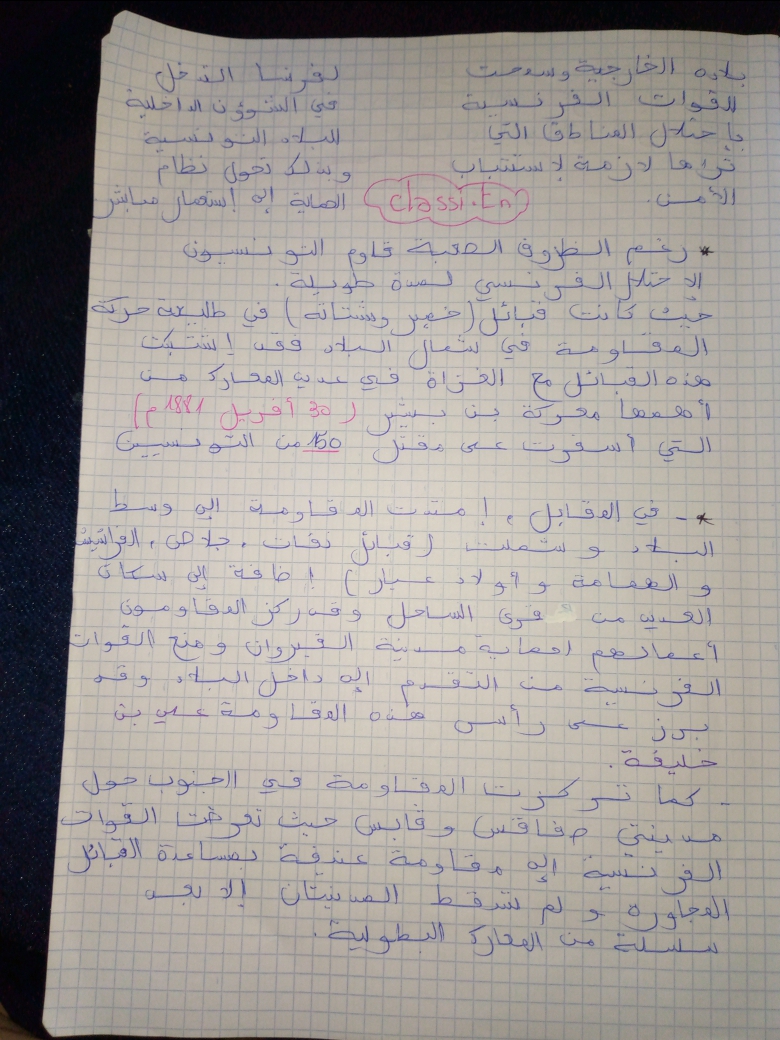 بلاده الخارجية وسمحت
القوات الفرنسية
بإحتلال المناطق التي
تراها لازمة لإستتباب
الأمن.
لفرنسا التدخل
في الشؤون الداخلية
للبلاد التونسية
وبذلك تحول نظام
الحماية إلى إستعمار مباشر
classi.En
* رغم الظروف الصعبة قاوم التونسيون
الاحتلال الفرنسي لمدة طويلة.
حيث كانت قبائل (خمير وشتاتة) في طليعة حركة
المقاومة في شمال البلاد فقد إشتبكت
هذه القبائل مع الغزاة في عديد المعارك من
أهمها معركة بن بشير (30 أفريل 1881م)
التي أسفرت على مقتل 150 من التونسيين
*- في المقابل، إمتدت المقاومة إلى وسط
البلاد وشملت (قبائل نفات، جلاص، الفراشيش
والهمامة وأولاد عيار) إضافة إلى سكان
العديد من قرى الساحل وقد ركز المقاومون
أعمالهم لحماية مدينة القيروان ومنع القوات
الفرنسية من التقدم إلى داخل البلاد وقد
برز على رأس هذه المقاومة علي بن
خليفة.
- كما تركزت المقاومة في الجنوب حول
مدينتي صفاقس وقابس حيث تعرضت القوات
الفرنسية إلى مقاومة عنيفة بمساعدة القبائل
المجاورة ولم تسقط المدينتان إلا بعد
سلسلة من المعارك البطولية.